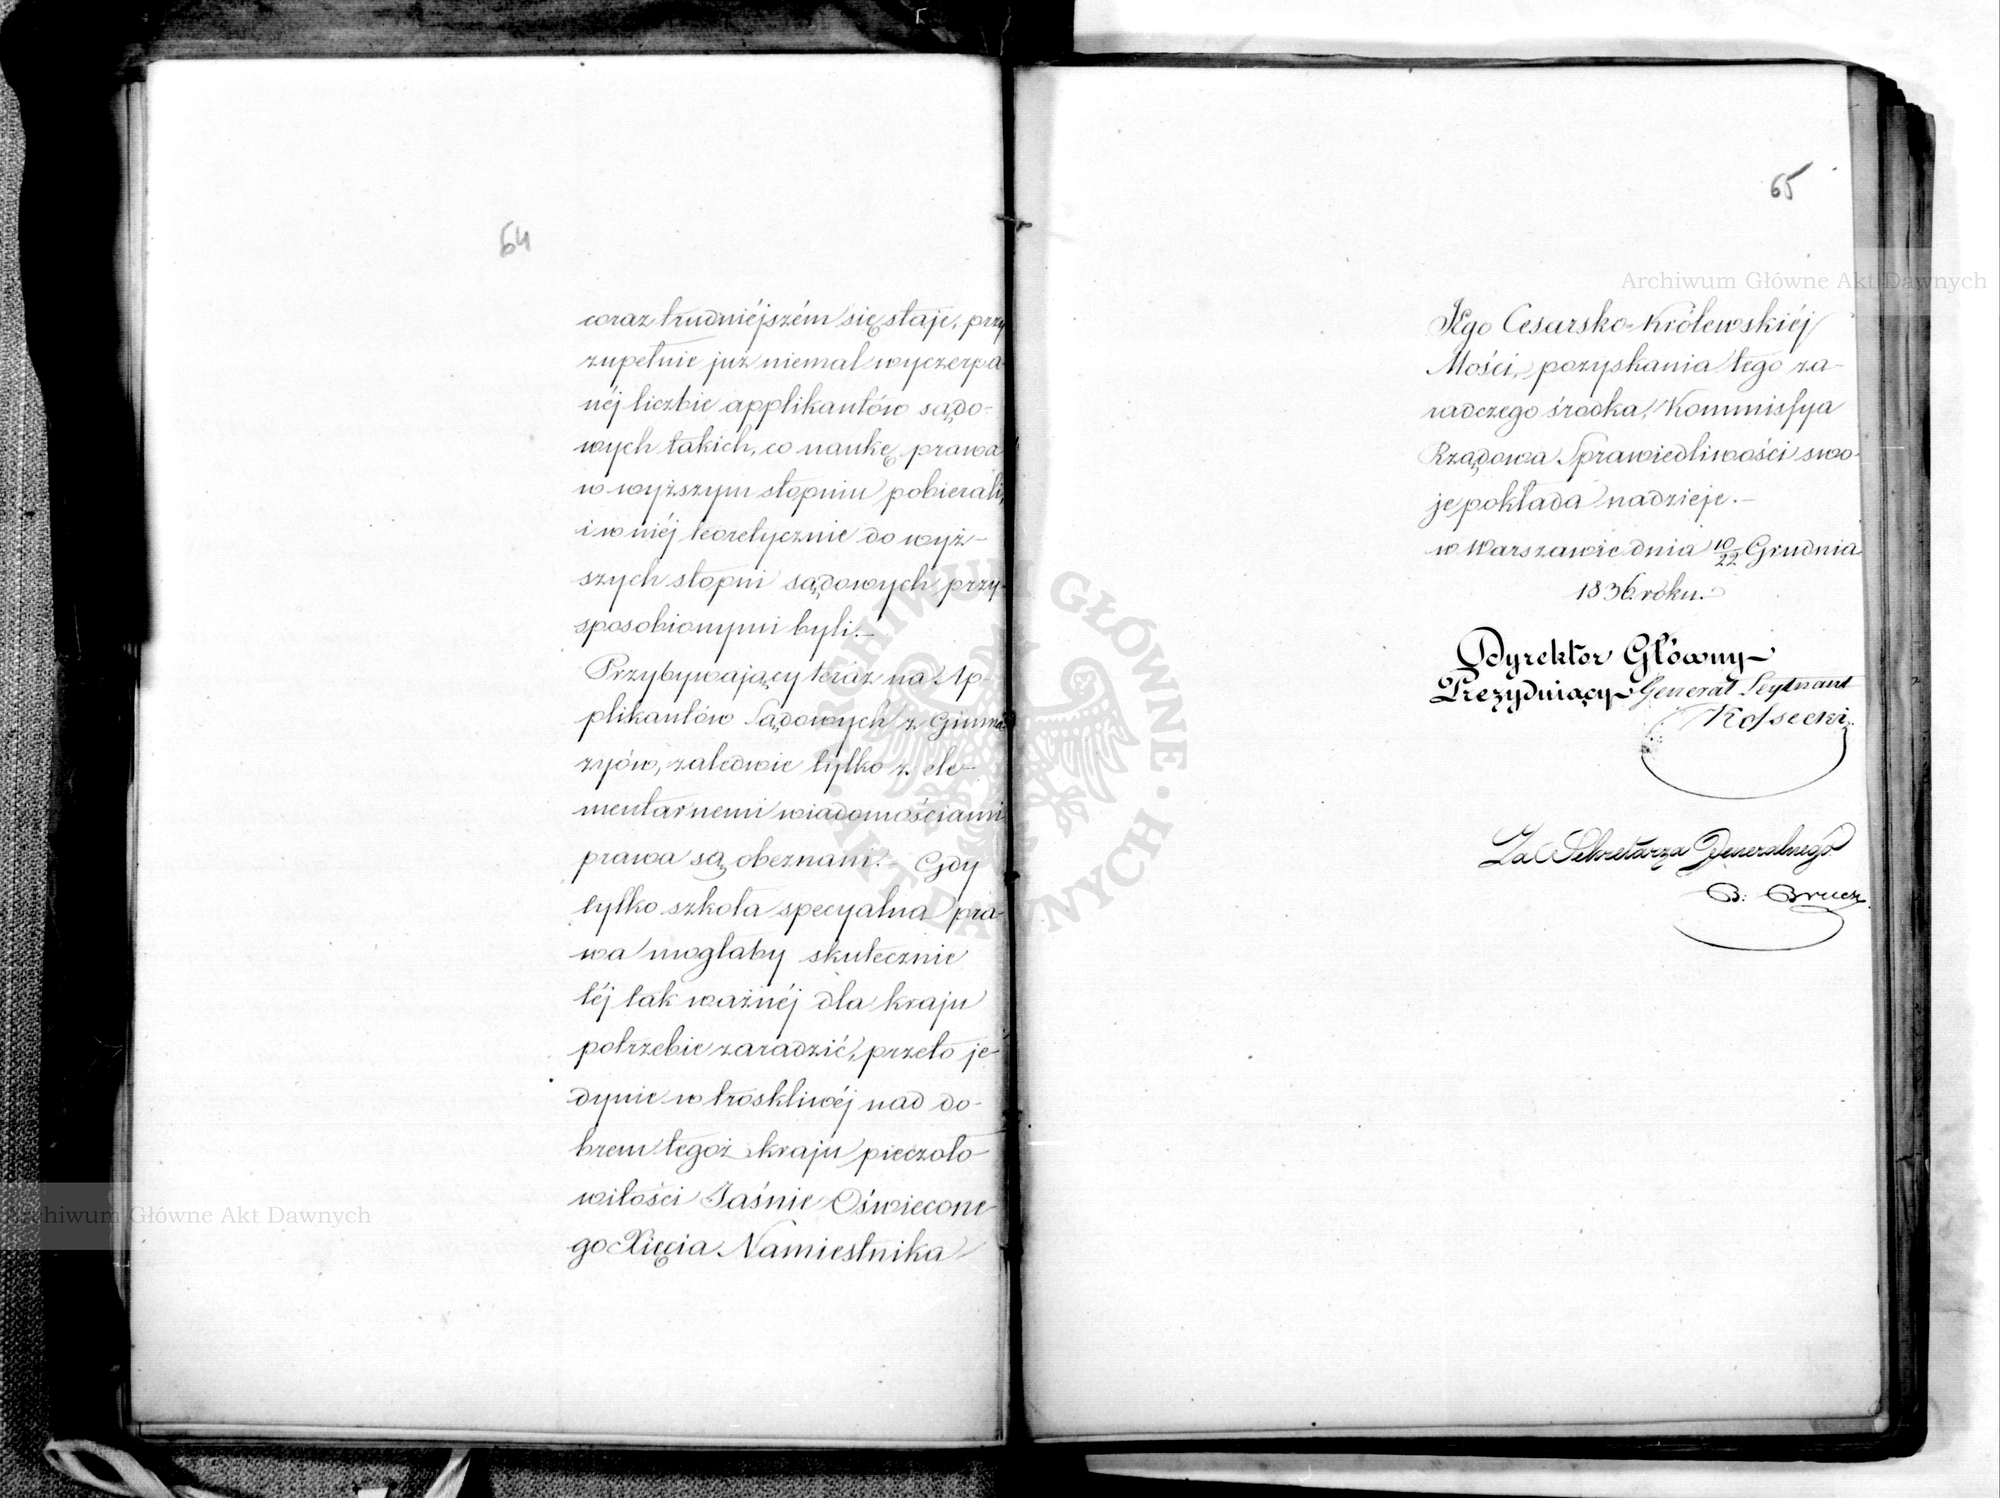 64
coraz trudniéjszém się staje, przy
zupełnie już niemal wyczerpa-
néj liczbie applikantów sądo-
wych takich, co naukę prawa
w wyższym stopniu pobierali,
i w niéj teoretycznie do wyż-
szych stopni sądowych przy-
sposobionymi byli.—
Przybywający teraz na Ap-
plikantów Sądowych z Gimna-
zyów, zaledwie tylko z ele-
mentarnemi wiadomościami
prawa są obeznani.— Gdy
tylko szkoła specyalna pra-
wa mogłaby skutecznie
téj tak ważnéj dla kraju
potrzebie zaradzić, przeto je-
dynie w troskliwéj nad do-
brem tegoż kraju pieczoło-
witości Jaśnie Oświecone-
go Xięcia Namiestnika
65
Jego Cesarsko-Królewskiéj
Mości, pozyskania tego za-
radczego środka, Kommissya
Rządowa Sprawiedliwości swo-
je pokłada nadzieje.—
w Warszawie dnia 10/22 Grudnia
1836 roku.
Dyrektor Główny
Prezydujący Generał Leytnant
Kossecki
Za Sekretarza Generalnego
Archiwum Główne Akt Dawnych
Archiwum Główne Akt Dawnych
ARCHIWUM GŁÓWNE AKT DAWNYCH